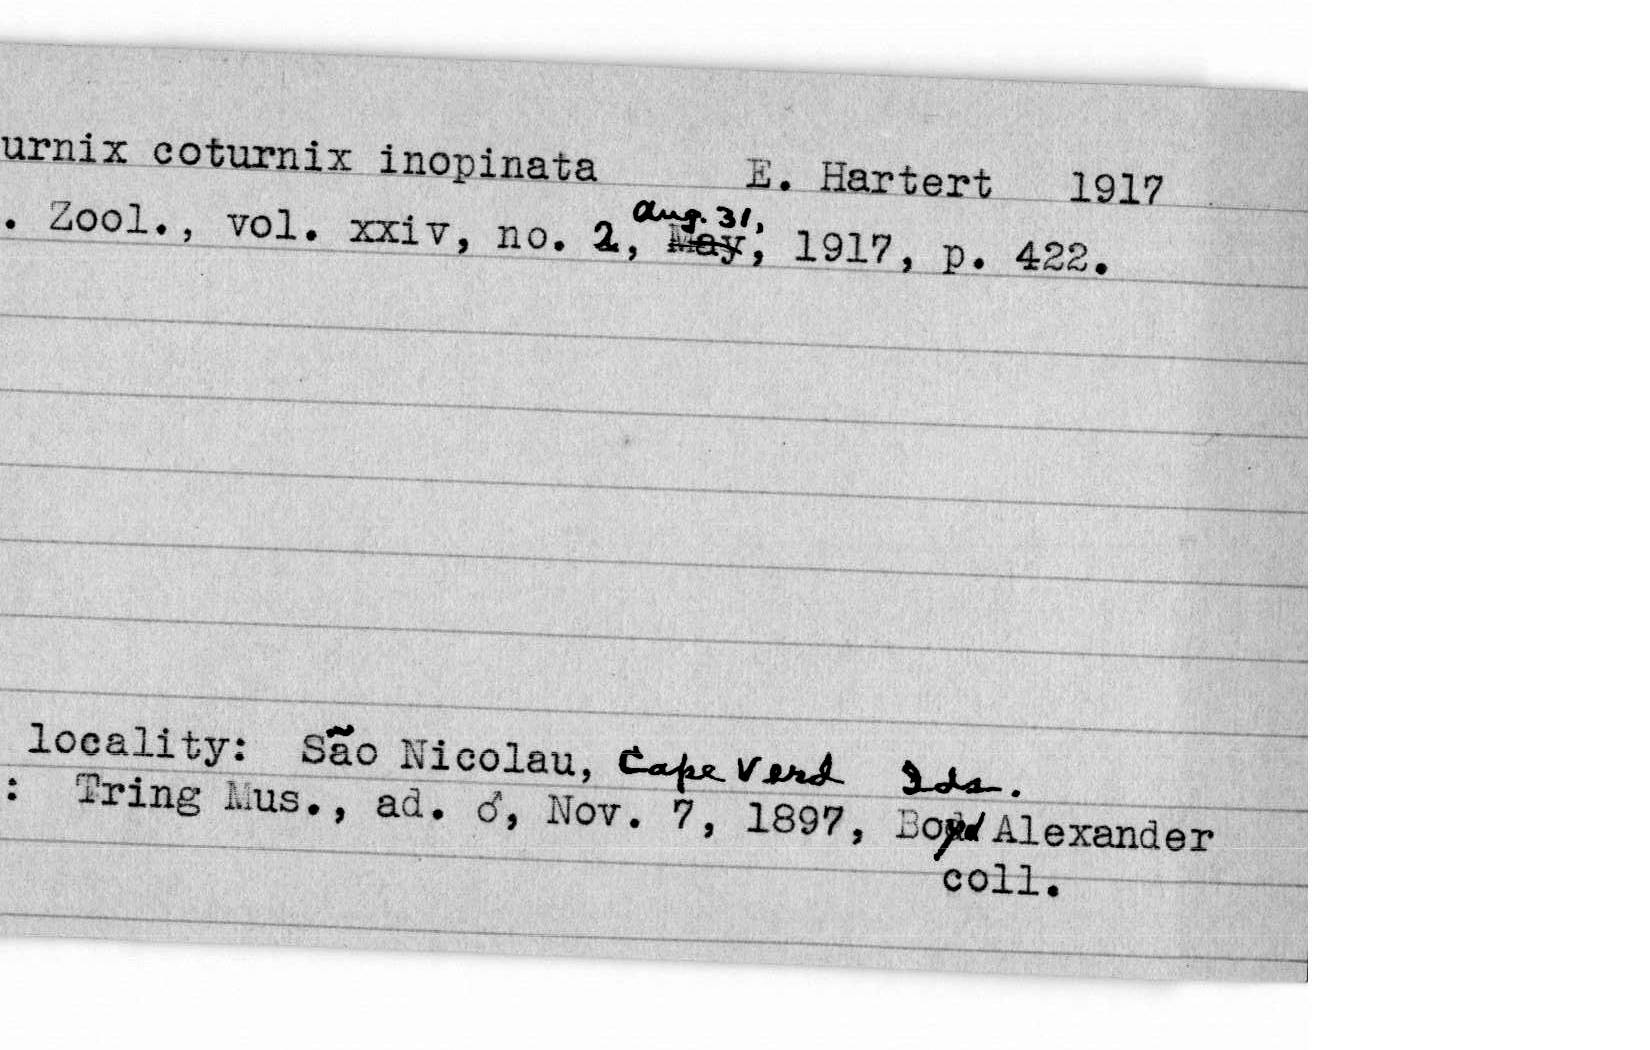 urnix coturnix inopinata E. Hartert 1917
Aug. 31,
. Zool., vol. xxiv, no. 2, May, 1917, p. 422.
locality: São Nicolau, Cape Verd Ids.
: Tring Mus., ad. ♂, Nov. 7, 1897, Boyd Alexander
coll.